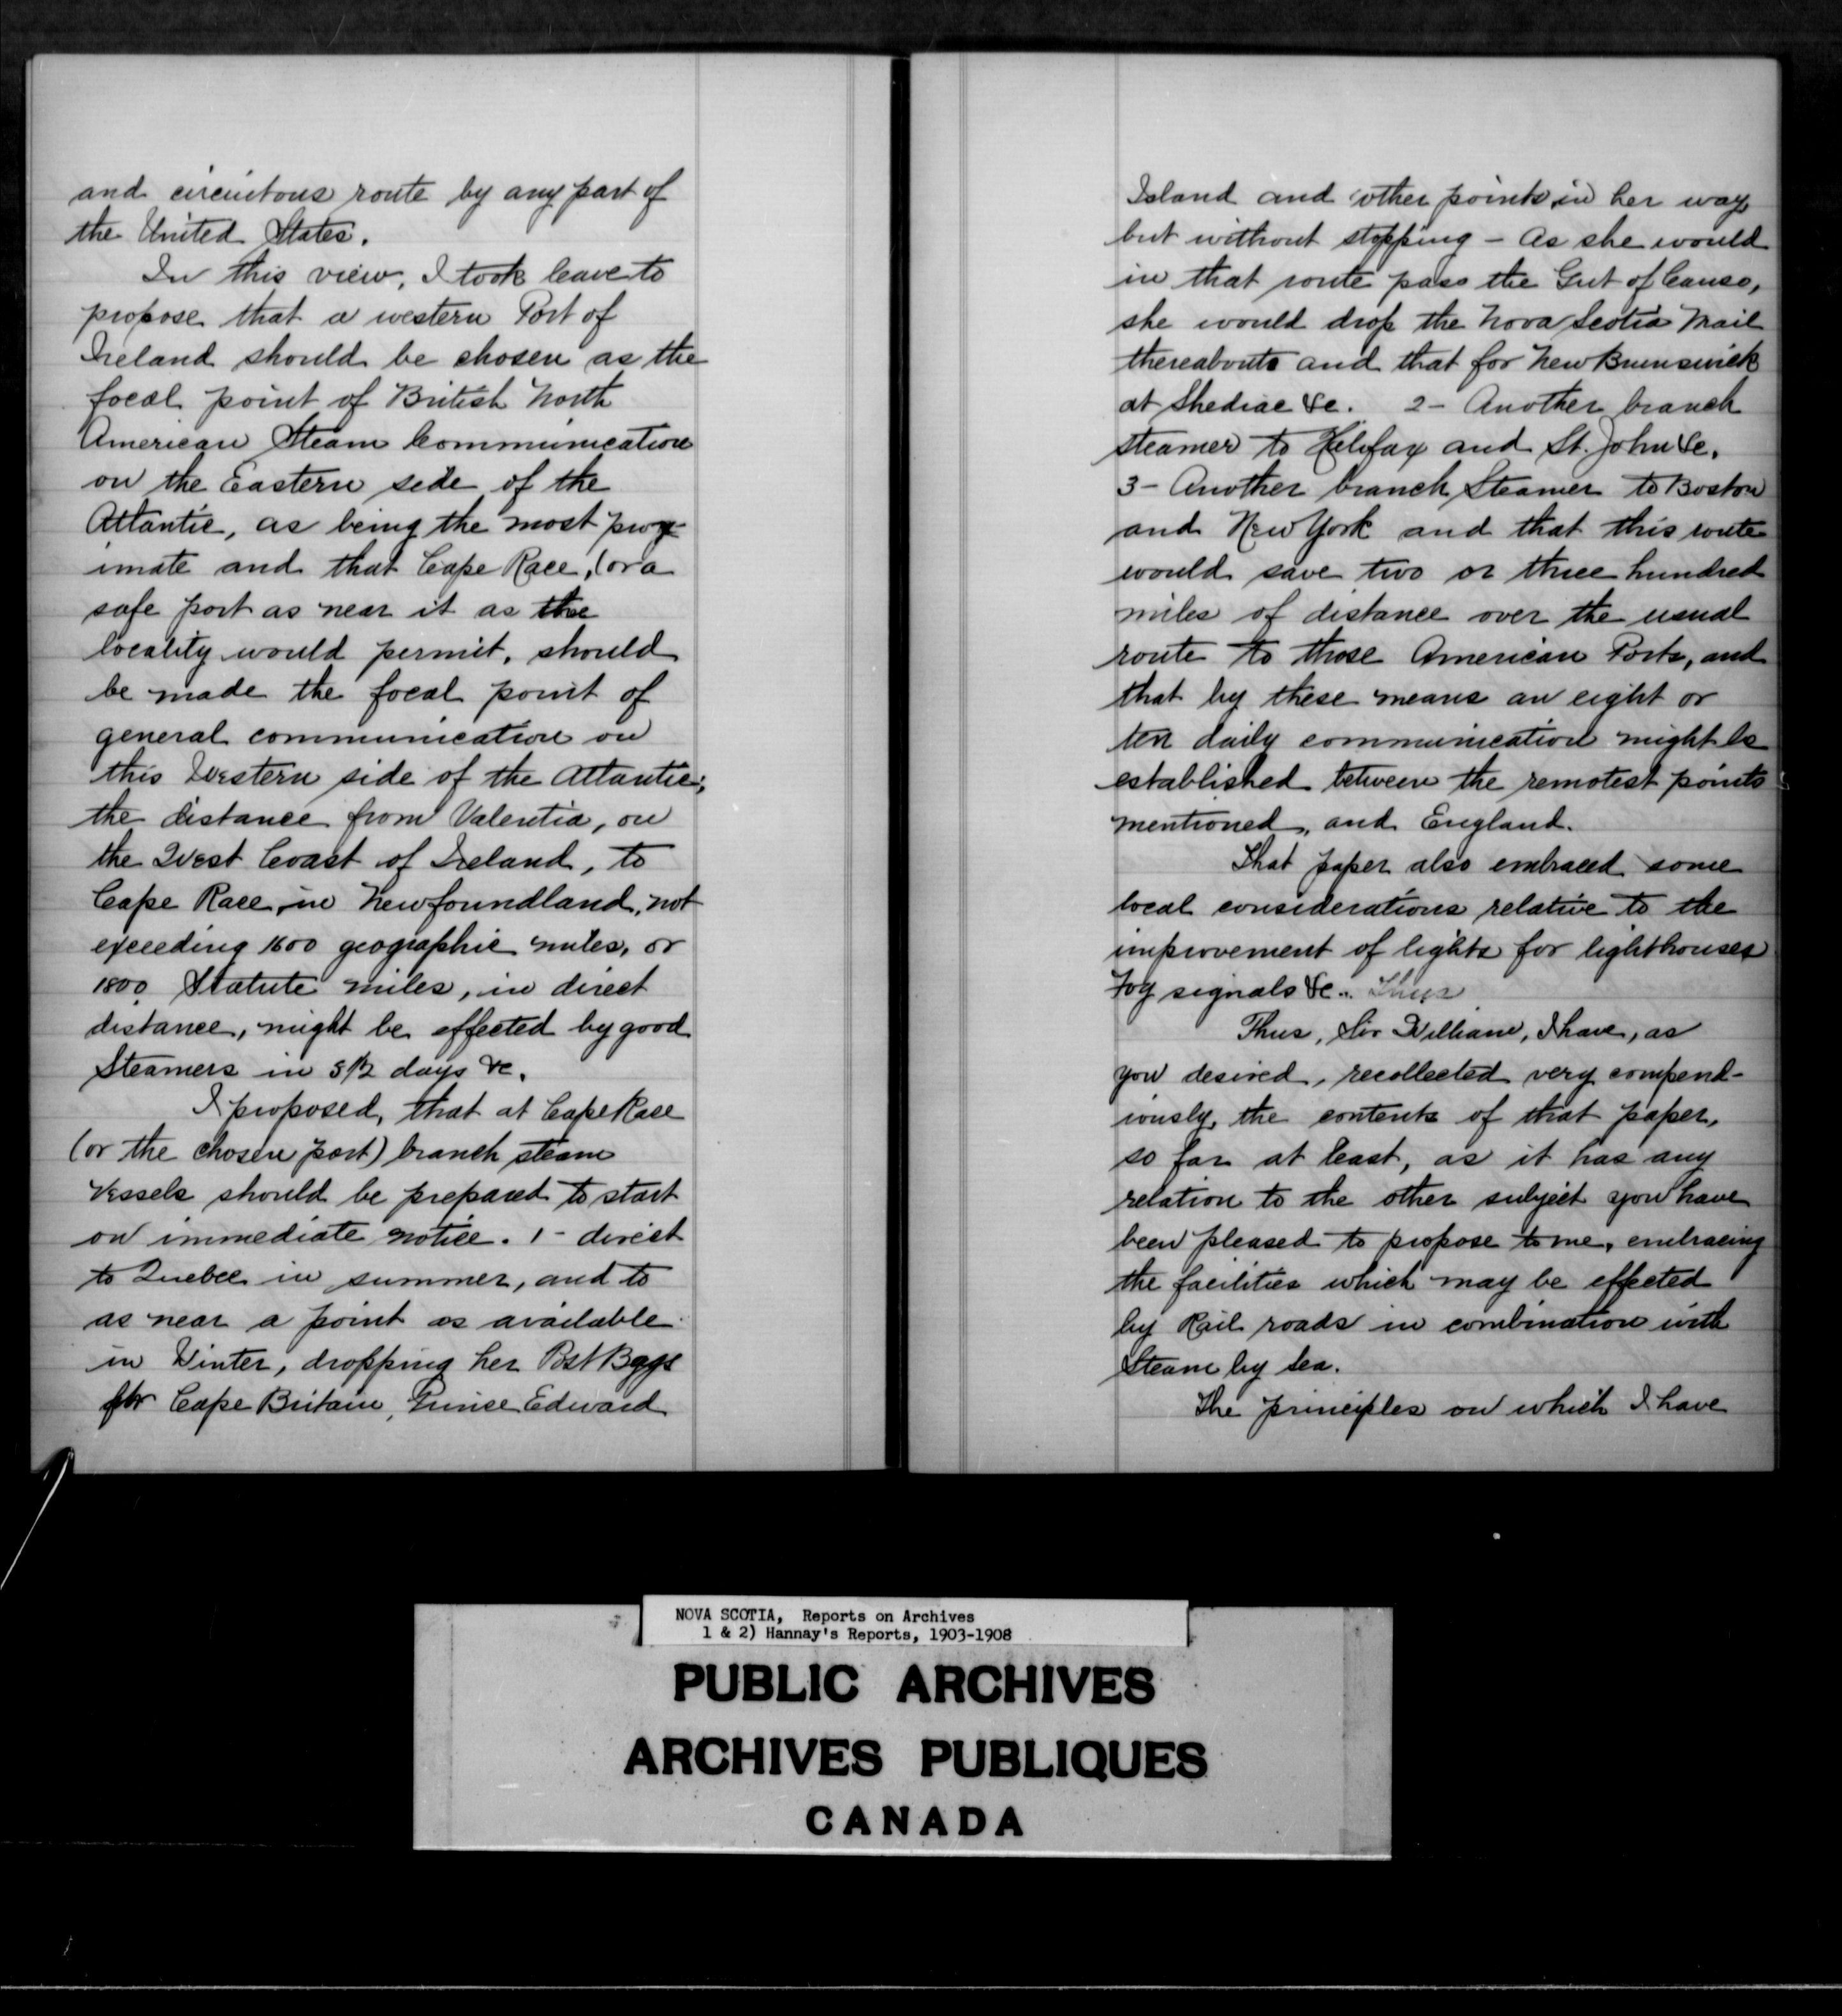 and circuitous route by any part of
the United States.
In this view, I took leave to
propose that a western Port of
Ireland should be chosen as the
focal point of British North
American Steam Communication
on the Eastern side of the
Atlantic, as being the most prox-
imate and that Cape Race, (or a
safe port as near it as the
locality would permit, should
be made the focal point of
general communication on
this Western side of the Atlantic;
the distance from Valentia, on
the West Coast of Ireland, to
Cape Race, in Newfoundland, not
exceeding 1600 geographic miles, or
1800 Statute miles, in direct
distance, might be effected by good
Steamers in 5 1/2 days &c.
I proposed, that at Cape Race
(or the chosen port) branch steam
Vessels should be prepared to start
on immediate notice. 1 - direct
to Quebec in summer, and to
as near a point as available
in Winter, dropping her Post Bags
for Cape Britain, Prince Edward
Island and other points in her way
but without stopping - As she would
in that route pass the Gut of Canso,
she would drop the Nova Scotia Mail
thereabouts and that for New Brunswick
at Shediac &c. 2 - Another branch
steamer to Halifax and St. John &c.
3 - Another branch Steamer to Boston
and New York and that this route
would save two or three hundred
miles of distance over the usual
route to those American Ports, and
that by these means an eight or
ten daily communication might be
established between the remotest points
mentioned, and England.
That paper also embraced some
local considerations relative to the
improvement of lights for lighthouses
Fog signals &c.. Thus
Thus, Sir William, I have, as
you desired, recollected very compend-
iously, the contents of that paper,
so far at least, as it has any
relation to the other subject you have
been pleased to propose to me, embracing
the facilities which may be effected
by Rail roads in combination with
Steam by Sea.
The principles on which I have
NOVA SCOTIA, Reports on Archives
1 & 2) Hannay's Reports, 1903-1908
PUBLIC ARCHIVES
ARCHIVES PUBLIQUES
CANADA